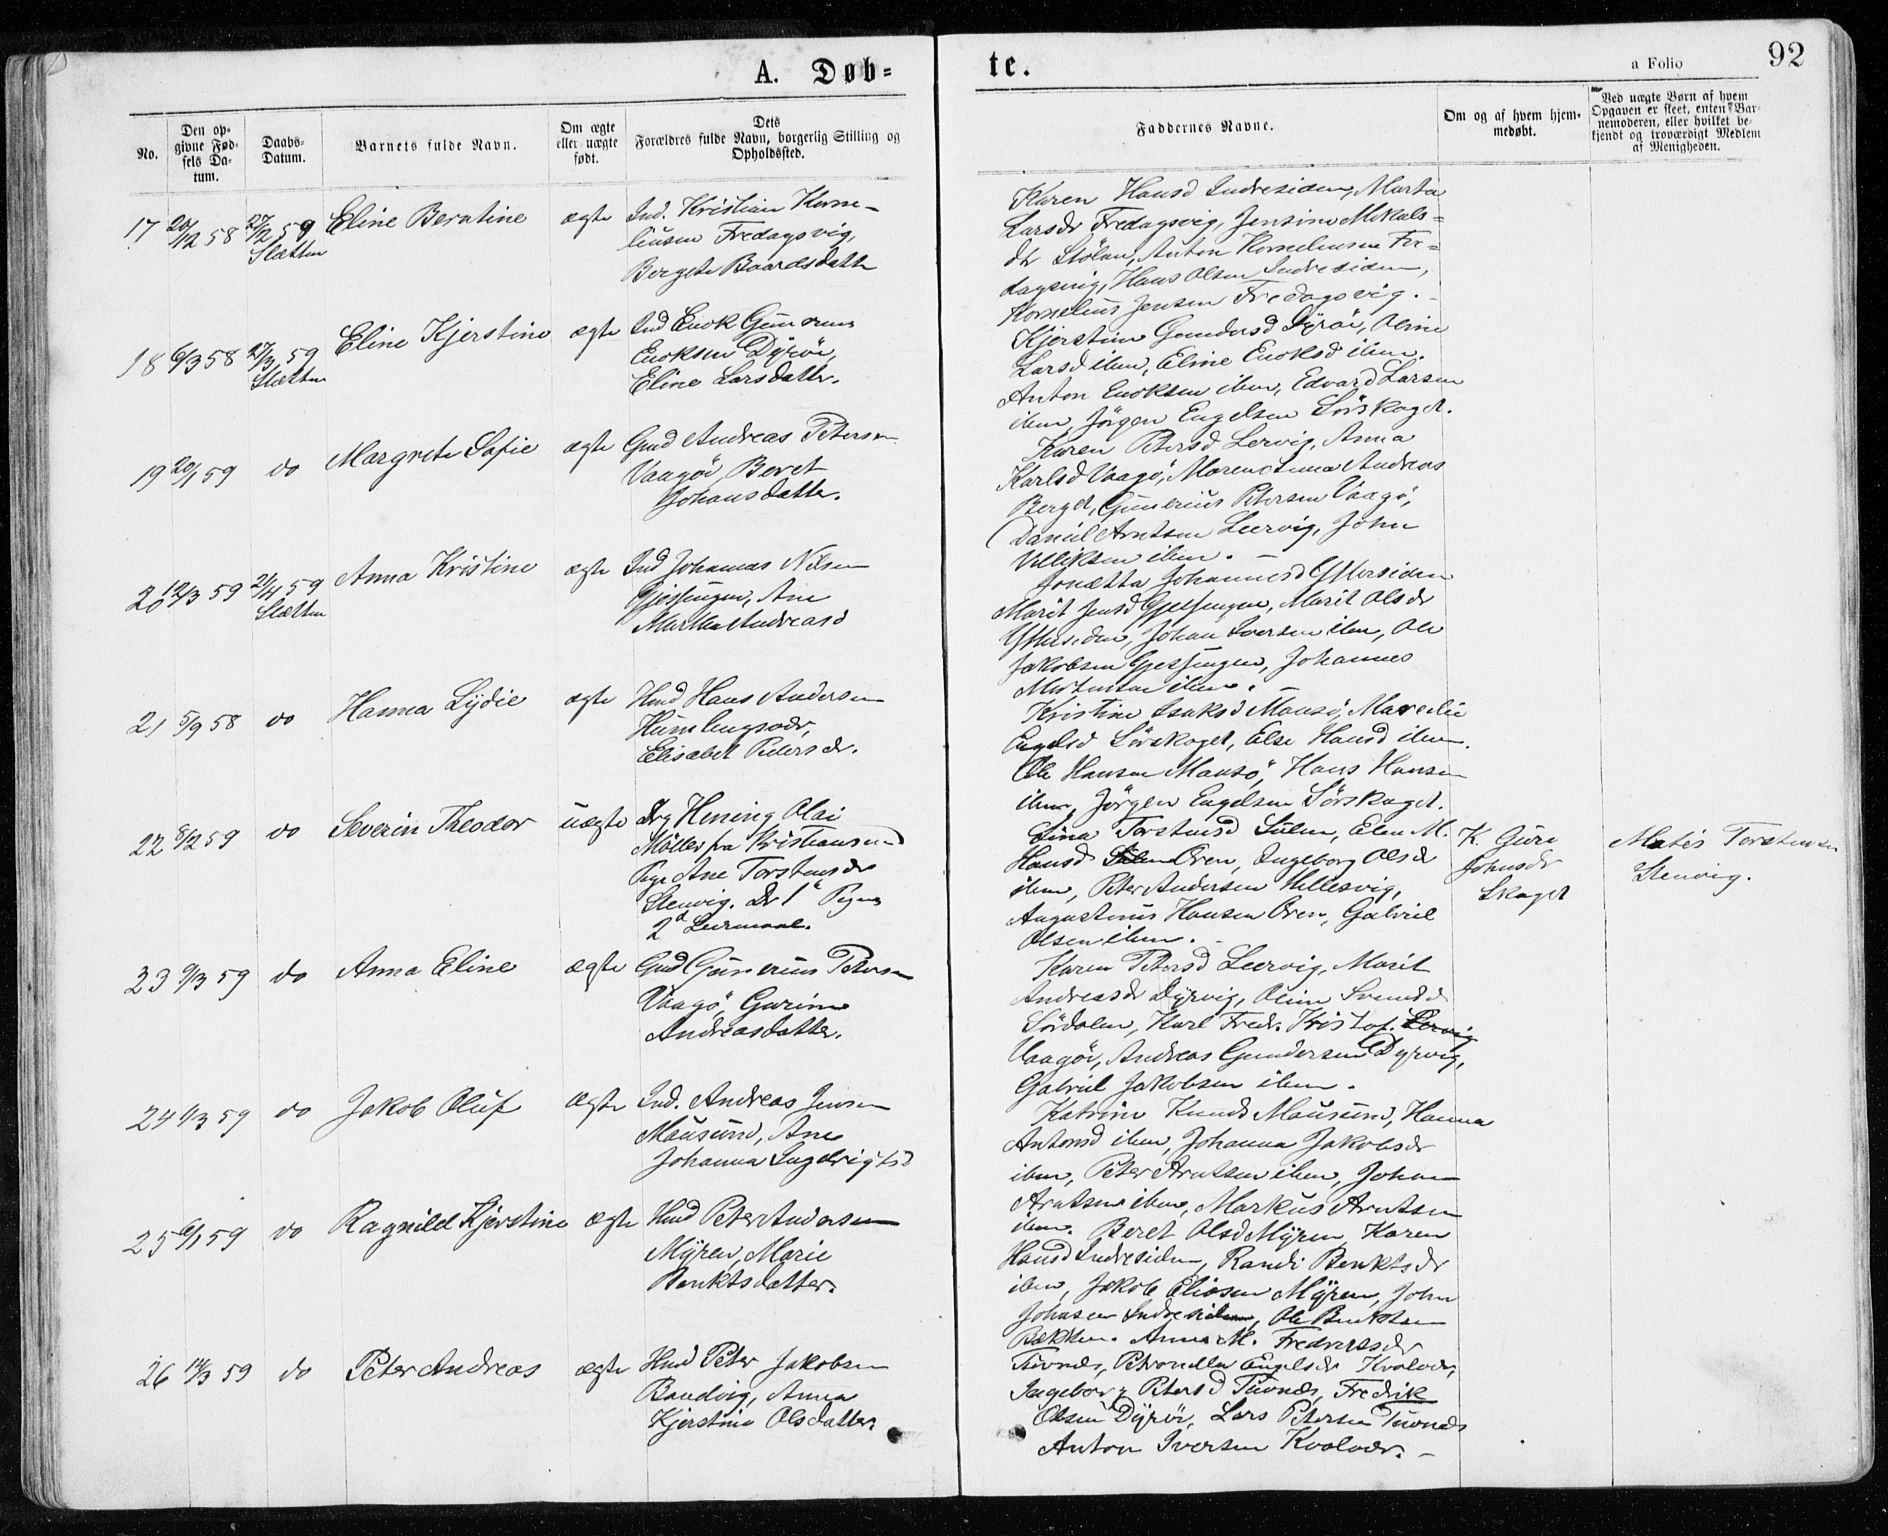 A. Døb-
te.
a Folio
92
No.
Den op-
givne Fød-
sels Da-
tum.
Daabs-
Datum.
Barnets fulde Navn.
Om ægte
eller uægte
født.
Dets
Forældres fulde Navn, borgerlig Stilling og
Opholdssted.
Faddernes Navne.
Om og af hvem hjem-
medøbt.
Ved uægte Børn af hvem
Opgaven er skeet, enten Bar-
nemoderen, eller hvilket be-
kjendt og troværdigt Medlem
af Menigheden.
17 20/12 58 27/2 59 Eline Beratine ægte Ind. Kristian Korne-
Slætten
liusen Fredagsvig,
Bergete Baardsdatter
Karen Hansd Indresiden, Marta
Larsdr Fredagsvig, Jensine Mikals-
dr Stølan, Anton Korneliusen Fre-
dagsvig, Hans Olsen Indresiden,
Kornelius Jensen Fredagsvig.
18 6/3 58 27/3 59 Eline Kjerstine ægte Ind Enok
Slætten
Enoksen Dÿröe,
Eline Larsdatter.
Kjerstine Gundersd Dÿröe, Oline
Larsd ibm, Eline Enoksd ibm.
Anton Enoksen ibm, Edvard Larsen
ibm Jörgen Engelsen Sörskaget.
19 20/1 59 do Margrete Sofie ægte Gmd Andreas Petersen
Vaagöe, Beret
Johansdatter.
Karen Petersd Lervig, Anna
Karlsd Vaagö, Maren Andreas
Berget, Gunerius Petersen Vaagö,
Daniel Arntsen Leervig, John
ibm.
20 12/3 59 21/4 59 Anna Kristine ægte Ind Johannes Nilsen
Slætten
Gjessingen, Ane
Martha Andreasd
Johannesd Yttersiden
Marit Jensd Gjessingen, Marit Olsdr
Yttersiden, Johan Iversen ibm, Ole
Jakobsen Gjessingen, Johannes
ibm.
21 5/9 58 do Hanna Lÿdie ægte Hmd Hans Andersen
Elisabet Petersdr.
Kristine Isaksd Mausö,
Engelsd Sörskaget, Else Hansd ibm.
Ole Hansen Mausö, Hans Hansen
ibm, Jörgen Engelsen Sörskaget.
22 8/2 59 do Severin Theodor uægte Drg Hening Olai
Möller fra Kristiansund
Pige Ane Torstensdr
Stenvig. Ds 1ᵗ Pigens
2ᵈ Leiermaal.
Lina Torstensd Sulen, Elen M.
Hansd Oren, Ingeborg Olsdr
ibm, Peter Andersen Hellesvig,
Augustinus Hansen Oren, Gabriel
Olsen ibm.
K. Guri
Johnsdr
Skaget
Matis Torstensen
Stenvig.
23 9/3 59 do Anna Eline ægte Gmd Gunerius Petersen
Vaagö, Gurine
Andreasdatter.
Karen Petersd Leervig, Marit
Andreasdr Dÿrvig, Oline Svendsd
Sördalen, Karl Fredr. Kristof. Lervig
Vaagöe, Andreas Gundersen Dyrvig,
Gabriel Jakobsen ibm.
24 1/3 59 do Jakob Oluf ægte Ind. Andreas Jensen
Mausund, Ane
Johanna Ingebrigtsd
Katrine Knudsd Mausund, Hanna
Antonsd ibm, Johanna Jakobsdr
ibm, Peter Arntsen ibm, Johan
Arntsen ibm, Markus Arntsen
ibm.
25 6/1 59 do Ragnild Kjerstine ægte Hmd Peter Andersen
Mÿren, Marie
Benktsdatter.
Beret Olsd Mÿren, Karen
Hansd Indresiden, Randi Benktsdr
ibm, Jakob Eliasen Mÿren, John
Johnsen Indresiden, Ole Benktsen
Bækken.
26 14/3 59 do Peter Andreas ægte Hmd Peter Jakobsen
Bondvig, Anna
Kjerstine Olsdatter
Anna M. Fredriksdr
Tuvnes, Petronella Engelsdr Kvalvær,
Ingeborg Petersd Tuvnes, Fredrik
Olsen Dÿröe, Lars Petersen Tuvnes
Anton Iversen Kvalvær.